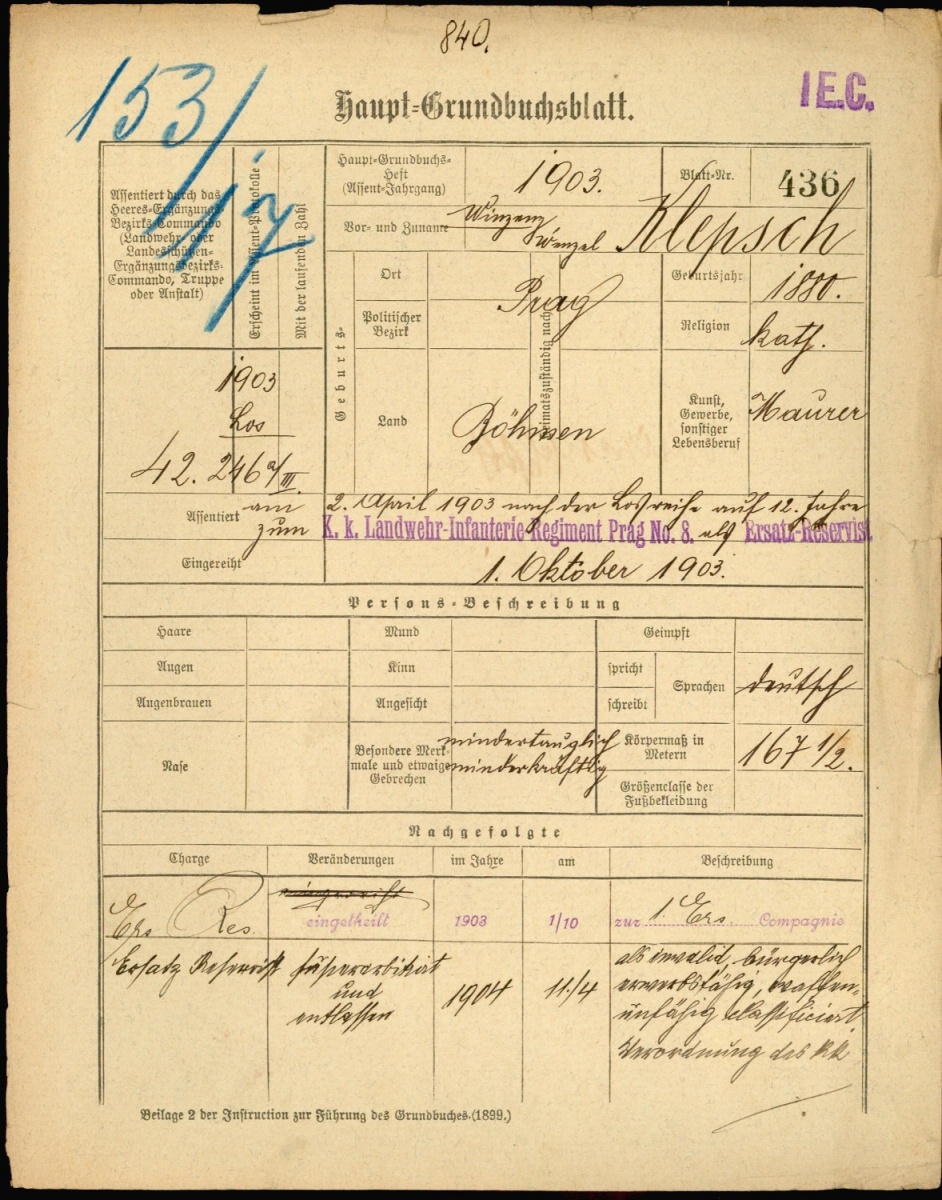 840.
153/17
I E.C.
Haupt-Grundbuchsblatt.
Assentiert durch das
Heeres-Ergänzungs-
Bezirks-Commando
(Landwehr- oder
Landesschützen-
Ergänzungsbezirks-
Commando, Truppe
oder Anstalt)
Erscheint im Assent-Protokolle
Mit der laufenden Zahl
Haupt-Grundbuchs-
Heft
(Assent-Jahrgang)
1903.
Blatt-Nr.
436
Vor- und Zuname
Winzenz
Wenzel Klepsch
Geburts-
Ort
Prag
Politischer
Bezirk
Land
Böhmen
Heimatszuständig nach
Geburtsjahr
1880.
Religion
kath.
Kunst,
Gewerbe,
sonstiger
Lebensberuf
Maurer
1903
Los
42. 246 a/III.
Assentiert am 2. April 1903 nach der Losreihe auf 12. Jahre
zum K. k. Landwehr-Infanterie-Regiment Prag No. 8. als Ersatz-Reservist.
Eingereiht 1. Oktober 1903.
Persons-Beschreibung
Haare
Mund
Geimpft
Augen
Kinn
spricht
schreibt
Sprachen
deutsch
Augenbrauen
Angesicht
Nase
Besondere Merk-
male und etwaige
Gebrechen
mindertauglich
minderkräftig
Körpermaß in
Metern
167 1/2.
Größenclasse der
Fußbekleidung
Nachgefolgte
Charge Veränderungen im Jahre am Beschreibung
Ers Res. eingetheilt 1903 1/10 zur 1. Ers. Compagnie
Ersatz Reservist superarbitriert
und
entlassen
1904 11./4
als invalid, bürgerlich
erwerbsfähig, waffen-
unfähig classificiert.
Verordnung des kk
Beilage 2 der Instruction zur Führung des Grundbuches.(1899.)